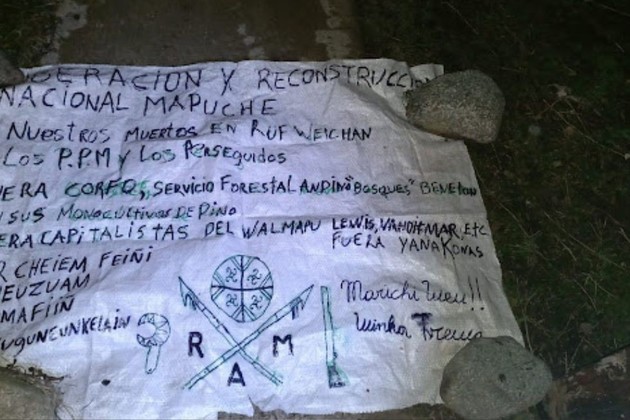 ERACION Y RECONSTRUCCI
NACIONAL MAPUCHE
NUESTROS MUERTOS EN RUF WEICHAN
LOS P.P.M Y LOS PERSEGUIDOS
ERA CORFO, SERVICIO FORESTAL ANDINO "BOSQUES" BENETON
SUS MONOCULTIVOS DE PINO
ERA CAPITALISTAS DEL WALMAPU LEWIS, ETC
FUERA YANAKONAS
R CHEIEM FEIÑI
EUZUAM
MAFIIN
UGUNEUNKELAIN
Marichi Weu!!
R A M